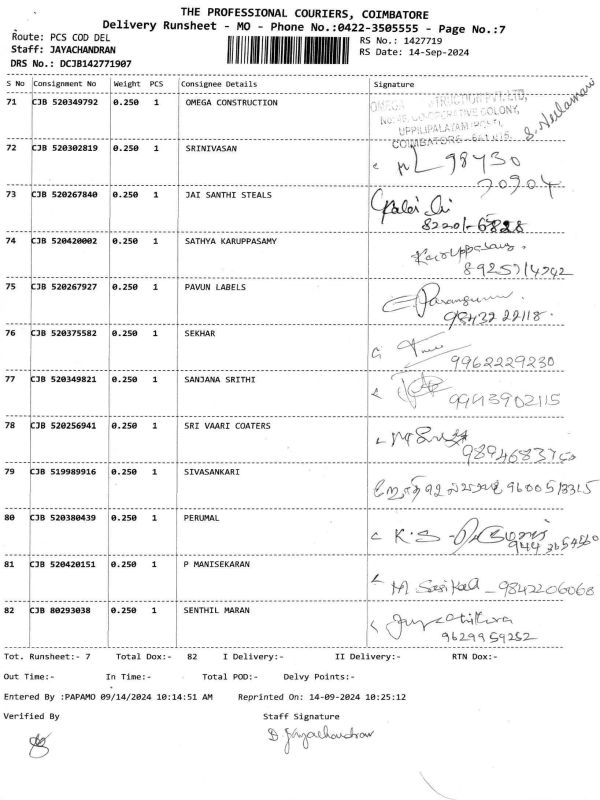 THE PROFESSIONAL COURIERS, COIMBATORE
Delivery Runsheet - MO - Phone No.:0422-3505555 - Page No.:7
Route: PCS COD DEL
RS No.: 1427719
Staff: JAYACHANDRAN
RS Date: 14-Sep-2024
DRS No.: DCJB142771907
S No Consignment No Weight PCS Consignee Details Signature
71 CJB 520349792 0.250 1 OMEGA CONSTRUCTION OMEGA
CO-OPERATIVE COLONY,
UPPILIPALAYAM (POST),
COIMBATORE - 641 015. S. Neelamani
72 CJB 520302819 0.250 1 SRINIVASAN 98430
70904
73 CJB 520267840 0.250 1 JAI SANTHI STEALS
82201-6828
74 CJB 520420002 0.250 1 SATHYA KARUPPASAMY Karuppasamy
75 CJB 520267927 0.250 1 PAVUN LABELS
98432 22118.
76 CJB 520375582 0.250 1 SEKHAR
9962229230
77 CJB 520349821 0.250 1 SANJANA SRITHI
9943902115
78 CJB 520256941 0.250 1 SRI VAARI COATERS
79 CJB 519989916 0.250 1 SIVASANKARI
80 CJB 520380439 0.250 1 PERUMAL K.S -
81 CJB 520420151 0.250 1 P MANISEKARAN M Sasikala - 9842206068
82 CJB 80293038 0.250 1 SENTHIL MARAN
9629959252
Tot. Runsheet:- 7 Total Dox:- 82 I Delivery:- II Delivery:- RTN Dox:-
Out Time:- In Time:- Total POD:- Delvy Points:-
Entered By :PAPAMO 09/14/2024 10:14:51 AM Reprinted On: 14-09-2024 10:25:12
Verified By Staff Signature
D Jayachandran